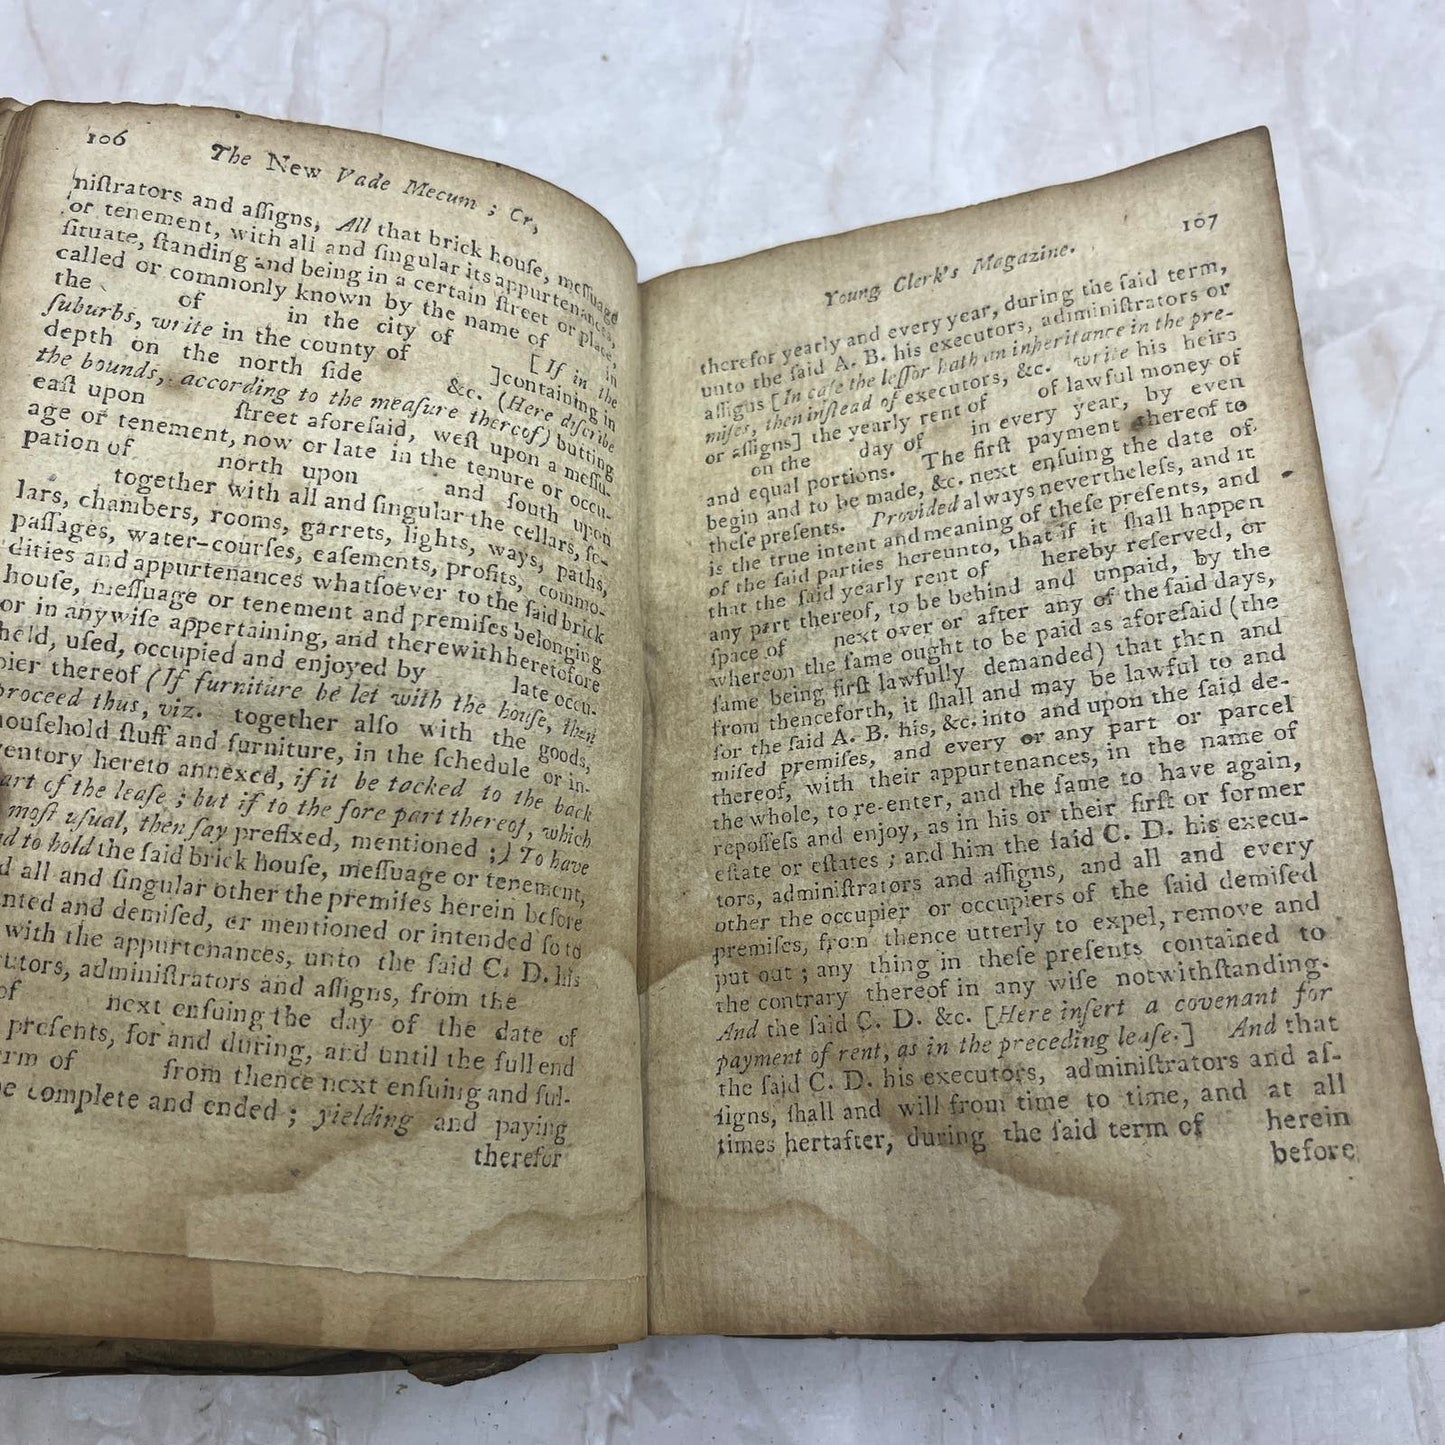 106
The New Vade Mecum ; Or,
niſtrators and aſſigns, All that brick houſe, meſſuage
or tenement, with all and ſingular its appurtenances,
ſituate, ſtanding and being in a certain ſtreet or place,
called or commonly known by the name of in
the of in the city of [If in the
ſuburbs, write in the county of ]containing in
depth on the north ſide &c. (Here diſcribe
the bounds, according to the meaſure thereof) butting
eaſt upon ſtreet aforeſaid, weſt upon a meſſu-
age or tenement, now or late in the tenure or occu-
pation of north upon and ſouth upon
together with all and ſingular the cellars, ſo-
lars, chambers, rooms, garrets, lights, ways, paths,
paſſages, water-courſes, eaſements, profits, commo-
dities and appurtenances whatſoever to the ſaid brick
houſe, meſſuage or tenement and premiſes belonging
or in anywiſe appertaining, and therewith heretofore
held, uſed, occupied and enjoyed by late occu-
pier thereof (If furniture be let with the houſe, then
proceed thus, viz. together alſo with the goods,
houſehold ſtuff and furniture, in the ſchedule or in-
ventory hereto annexed, if it be tacked to the back
part of the leaſe ; but if to the fore part thereof, which
moſt uſual, then ſay prefixed, mentioned ;) To have
and to hold the ſaid brick houſe, meſſuage or tenement,
all and ſingular other the premiſes herein before
and demiſed, or mentioned or intended ſo to
with the appurtenances, unto the ſaid C. D. his
administrators and aſſigns, from the
of next enſuing the day of the date of
preſents, for and during, and until the full end
term of from thence next enſuing and ful-
complete and ended ; yielding and paying
therefor
Young Clerk's Magazine.
107
therefor yearly and every year, during the ſaid term,
unto the ſaid A. B. his executors, adminiſtrators or
aſſigns [In caſe the leſſor hath an inheritance in the pre-
miſes, then inſtead of executors, &c. write his heirs
or aſſigns] the yearly rent of of lawful money of
on the day of in every year, by even
and equal portions. The firſt payment thereof to
begin and to be made, &c. next enſuing the date of
theſe preſents. Provided always nevertheleſs, and it
is the true intent and meaning of theſe preſents, and
of the ſaid parties hereunto, that if it ſhall happen
that the ſaid yearly rent of hereby reſerved, or
any part thereof, to be behind and unpaid, by the
ſpace of next over or after any of the ſaid days,
whereon the ſame ought to be paid as aforeſaid (the
ſame being firſt lawfully demanded) that then and
from thenceforth, it ſhall and may be lawful to and
for the ſaid A. B. his, &c. into and upon the ſaid de-
miſed premiſes, and every or any part or parcel
thereof, with their appurtenances, in the name of
the whole, to re-enter, and the ſame to have again,
repoſſeſs and enjoy, as in his or their firſt or former
eſtate or eſtates ; and him the ſaid C. D. his execu-
tors, adminiſtrators and aſſigns, and all and every
other the occupier or occupiers of the ſaid demiſed
premiſes, from thence utterly to expel, remove and
put out ; any thing in theſe preſents contained to
the contrary thereof in any wiſe notwithſtanding.
And the ſaid C. D. &c. [Here inſert a covenant for
payment of rent, as in the preceding leaſe.] And that
the ſaid C. D. his executors, adminiſtrators and aſ-
ſigns, ſhall and will from time to time, and at all
times hertafter, during the ſaid term of herein
before